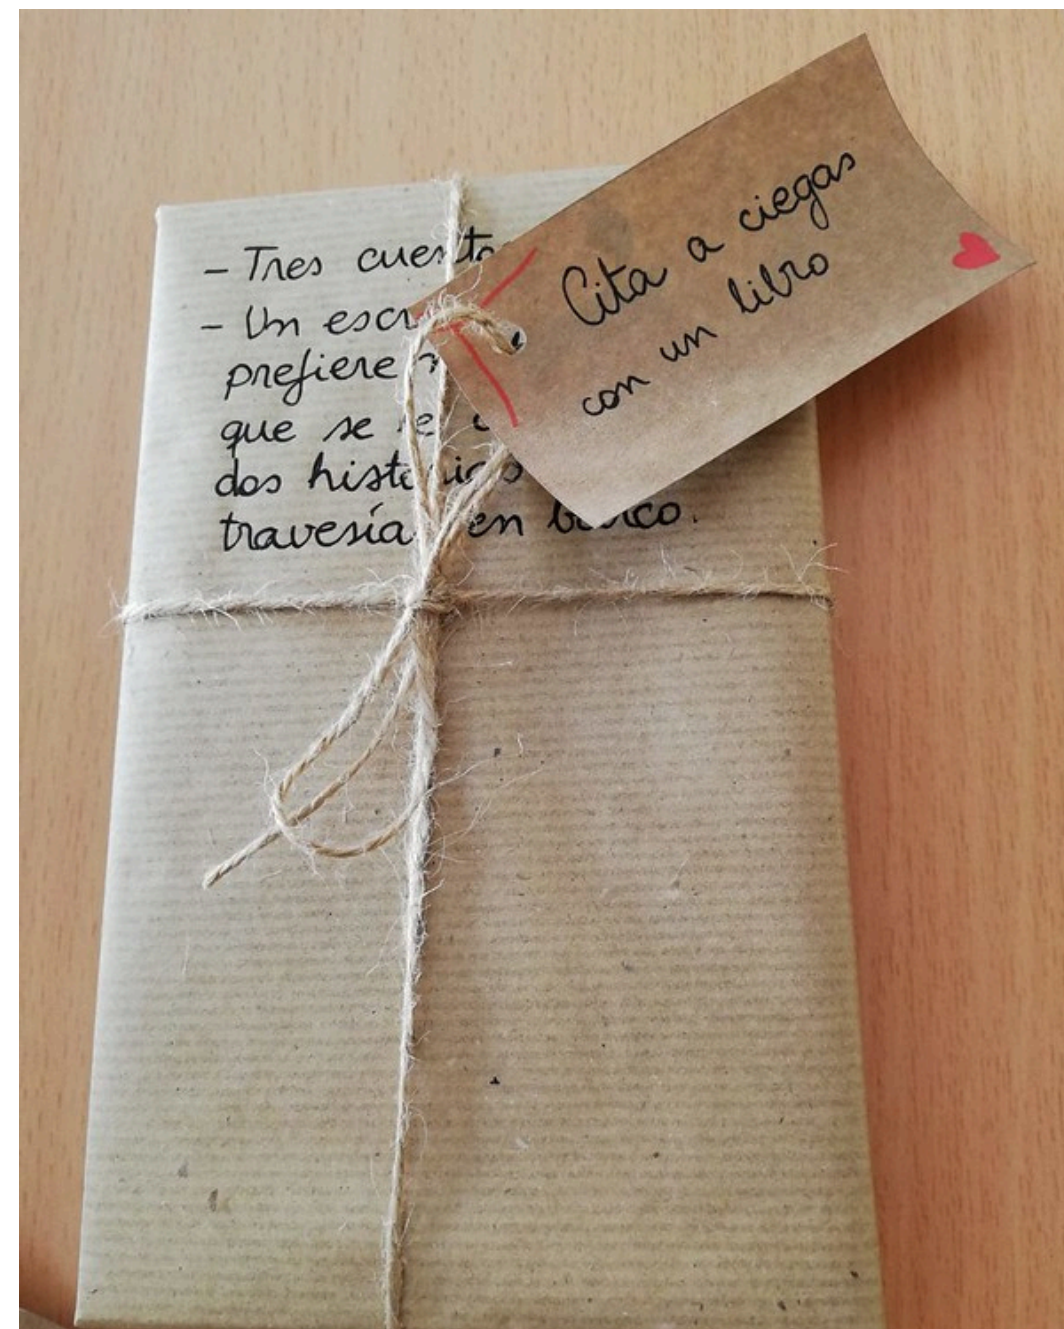 - Tres cuentos
- Un
prefiere
que se le
dos historias
travesía en barco.
Cita a ciegas
con un libro